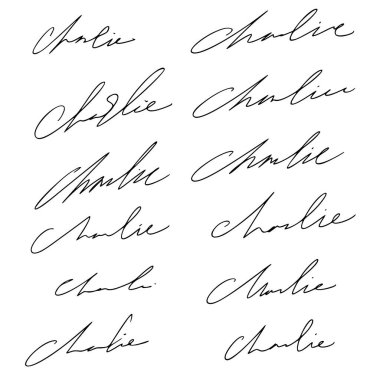 Charlie Charlie
Charlie Charlie
Charlie Charlie
Charlie Charlie
Charli Charlie
Charlie Charlie